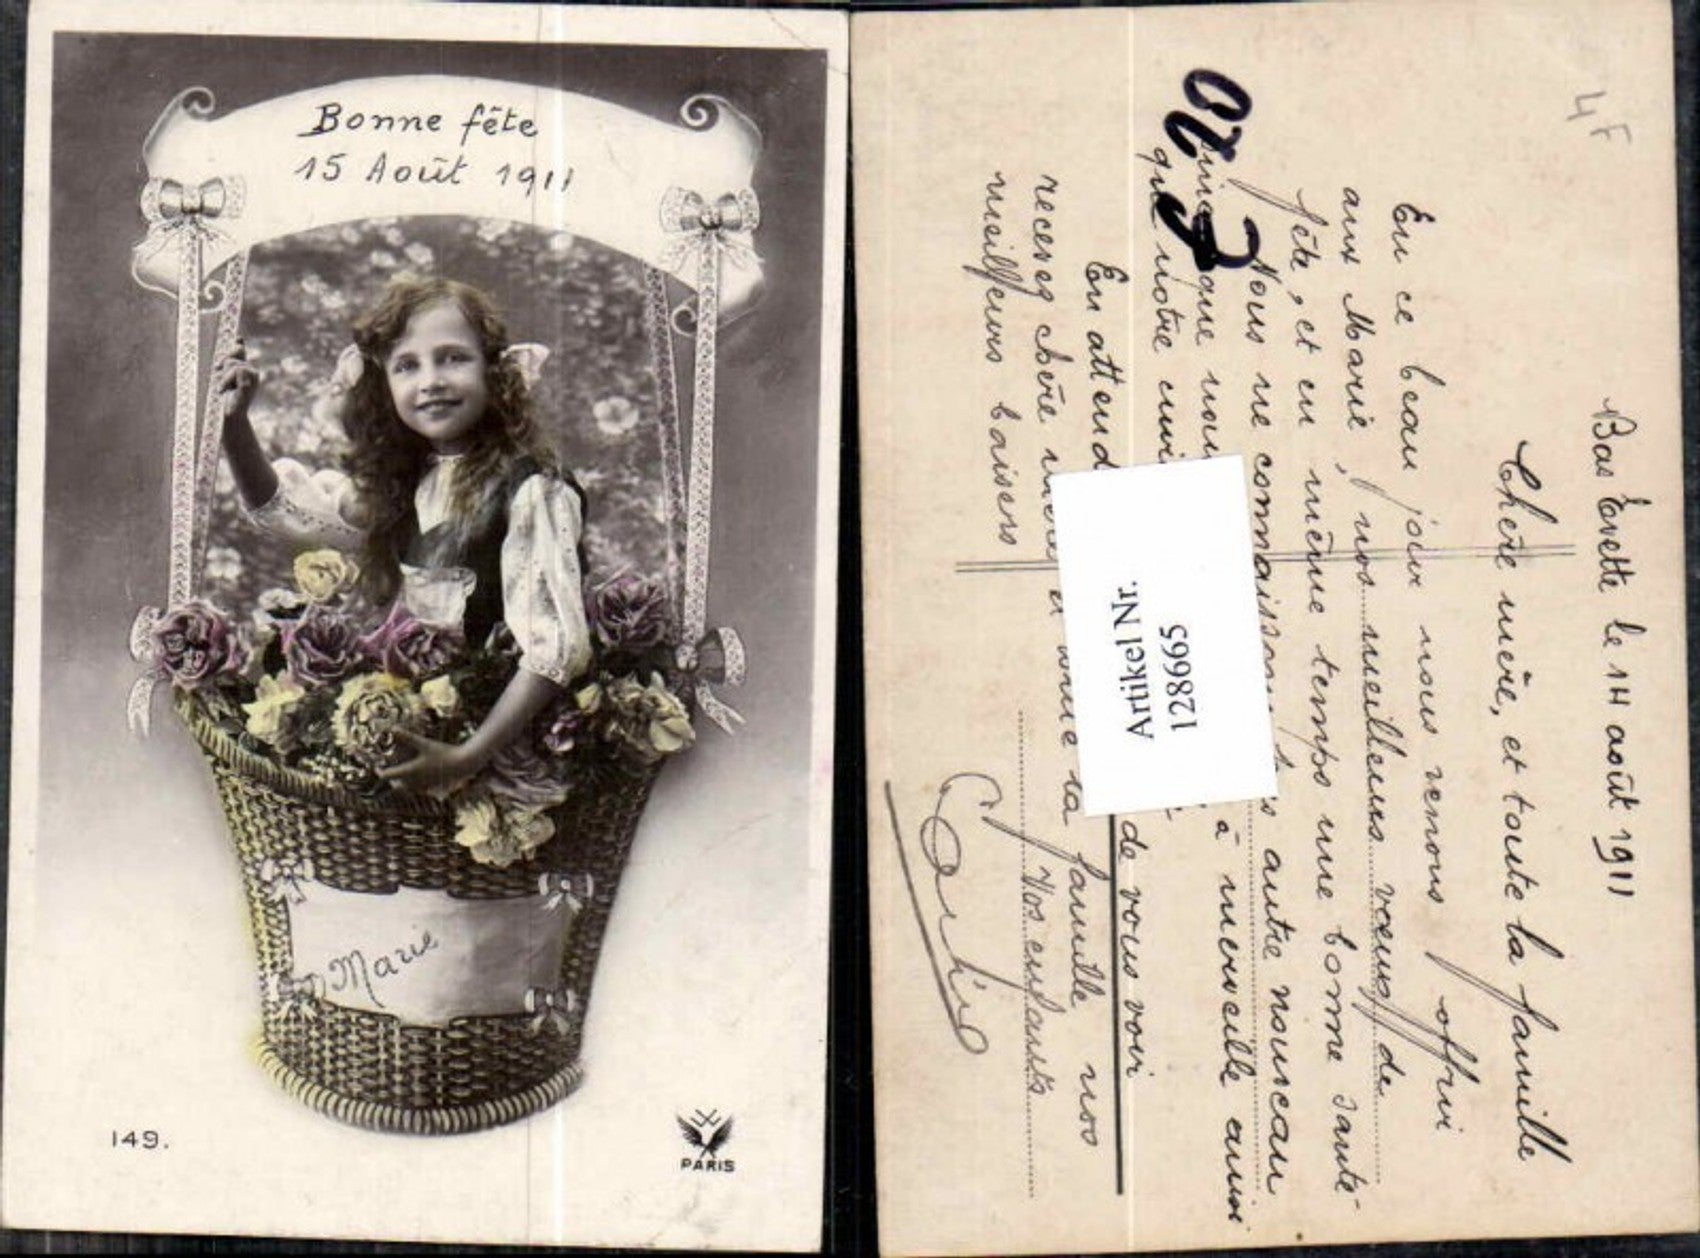 Bonne fête
15 Août 1911
Marie
149.
PARIS
4F
Bas Evette le 14 août 1911
Chère mère, et toute la famille
En ce beau jour nous venons offrir
aux Marie, nos meilleurs vœux de
fête, et en même temps une bonne santé
Nous ne connaissons autre nouveau
que nous à merveille ainsi
que notre
En attend de vous voir
recevez chère mère la famille nos
meilleurs baisers Vos enfants
Artikel Nr.
128665